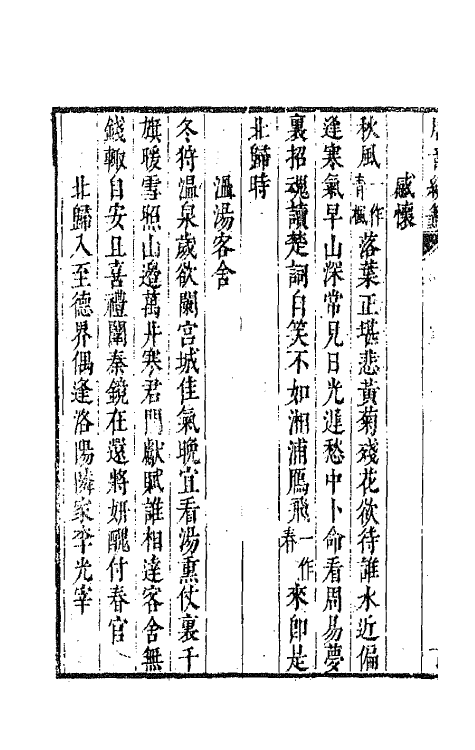 感懷
秋風一作青楓落葉正堪悲黃菊殘花欲待誰水近偏
逢寒氣早山深常見日光遲愁中卜命看周易夢
裏招魂讀楚詞自笑不如湘浦鴈飛一作春來即是
北歸時
溫湯客舍
冬狩溫泉歲欲闌宮城佳氣晩宜看湯熏仗裏千
旗暖雪照山邊萬井寒君門獻賦誰相達客舍無
錢輙自安且喜禮闈秦鏡在還將妍醜付春官
北歸入至德界偶逢洛陽隣家李光宰